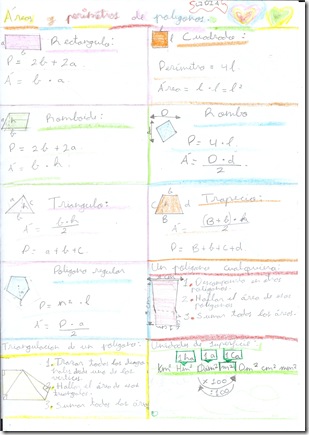 Áreas y perímetros de polígonos.
Rectangulo:
P = 2b + 2a
Á = b · a.
Cuadrado:
Perímetro = 4l.
Área = l · l = l²
Romboide:
P = 2b + 2a
Á = b · h
Rombo
P = 4 · l
Á = D · d / 2
Triangulo:
Á = b · h / 2
P = a + b + c.
Trapecio:
Á = (B + b) · h / 2
P = B + b + c + d.
Poligono regular
P = n · l
Á = P · a / 2
Un poligono cualquiera.
1. Descomponer en otros poligonos.
2. Hallar el área de esos poligonos.
3. Sumar todas las áreas.
Triangulacion de un poligono:
1. Trazar todas las diagonales desde uno de los vertices.
2. Hallar el área de esos triangulos.
3. Sumar todas las áreas
Unidades de superficie:
1 ha 1 a 1 ca
Km² Hm² Dam² m² dm² cm² mm²
× 100
: 100